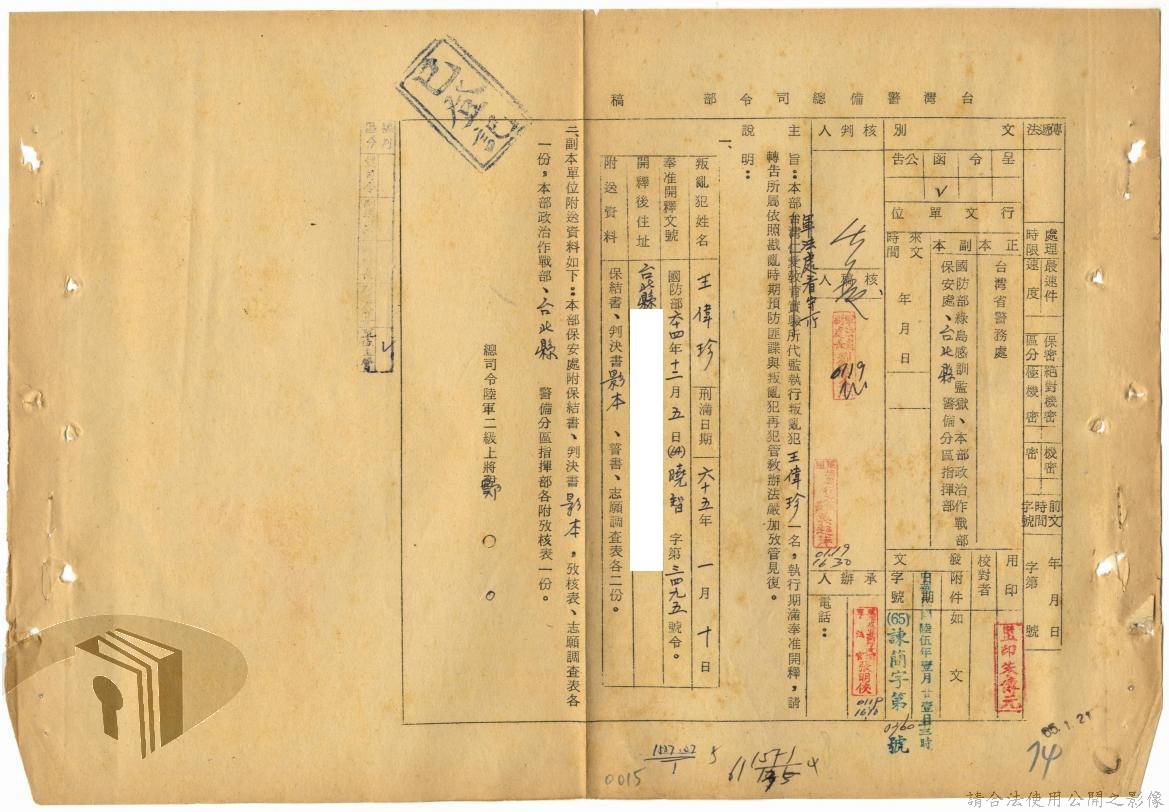 台灣警備總司令部 稿
傳遞法
處理時限
最速件
速度
保密區分
絕對機密
極機密
機密
密
前文時間字號
年 月 日
字第 號
文別
呈
令
函 V
公告
行文單位
正本 台灣省警務處
副本 國防部綠島感訓監獄、本部政治作戰部
保安處、台北縣 警備分區指揮部
來文時間
年 月 日
用印
校對者
發文
附件 如文
日期 中華民國陸伍年壹月廿壹日三時
字號 (65)諫簡字第0460號
核判人
核稿人
0119
0119
1630
承辦人
軍法官張明俊
0119
1610
電話：
主旨：本部軍法處看守所代監執行叛亂犯王偉珍一名，執行期滿奉准開釋，請
轉告所屬依照戡亂時期預防匪諜與叛亂犯再犯管教辦法嚴加攷管見復。
說明：
一、
叛亂犯姓名 王偉珍 刑滿日期 六十五年一月十日
奉准開釋文號 國防部六十四年十二月五日(64)曉智字第三四九五號令。
開釋後住址 台北縣
附送資料 保結書、判決書影本、誓書、志願調查表各二份。
二、副本單位附送資料如下：本部保安處附保結書、判決書影本，攷核表、志願調查表各
一份，本部政治作戰部、台北縣 警備分區指揮部各附攷核表一份。
總司令陸軍二級上將鄭○○
已登記
65.1.21
74
0015
1527.07
1
5
61
1571
4
請合法使用公開之影像